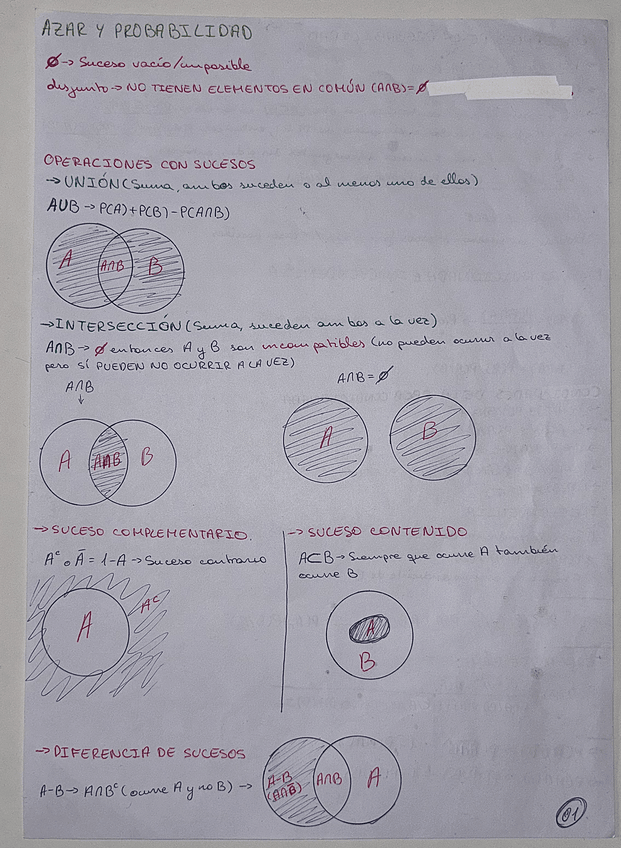 AZAR Y PROBABILIDAD
∅ → Suceso vacío/imposible
disjunto → NO TIENEN ELEMENTOS EN COMÚN (A∩B)=∅
OPERACIONES CON SUCESOS
→ UNIÓN (Suma, ambos suceden o al menos uno de ellos)
AUB → P(A)+P(B)-P(A∩B)
A A∩B B
→ INTERSECCIÓN (Suma, suceden ambos a la vez)
A∩B → ∅ entonces A y B son incompatibles (no pueden ocurrir a la vez
pero SÍ PUEDEN NO OCURRIR A LA VEZ)
A∩B
↓
A A∩B B
A∩B = ∅
A B
→ SUCESO COMPLEMENTARIO.
Aᶜ o Ā = 1-A → Suceso contrario
A Aᶜ
→ SUCESO CONTENIDO
A⊂B → Siempre que ocurre A también
ocurre B
A
B
→ DIFERENCIA DE SUCESOS
A-B → A∩Bᶜ (ocurre A y no B) →
A-B
(A∩B̄) A∩B A
01